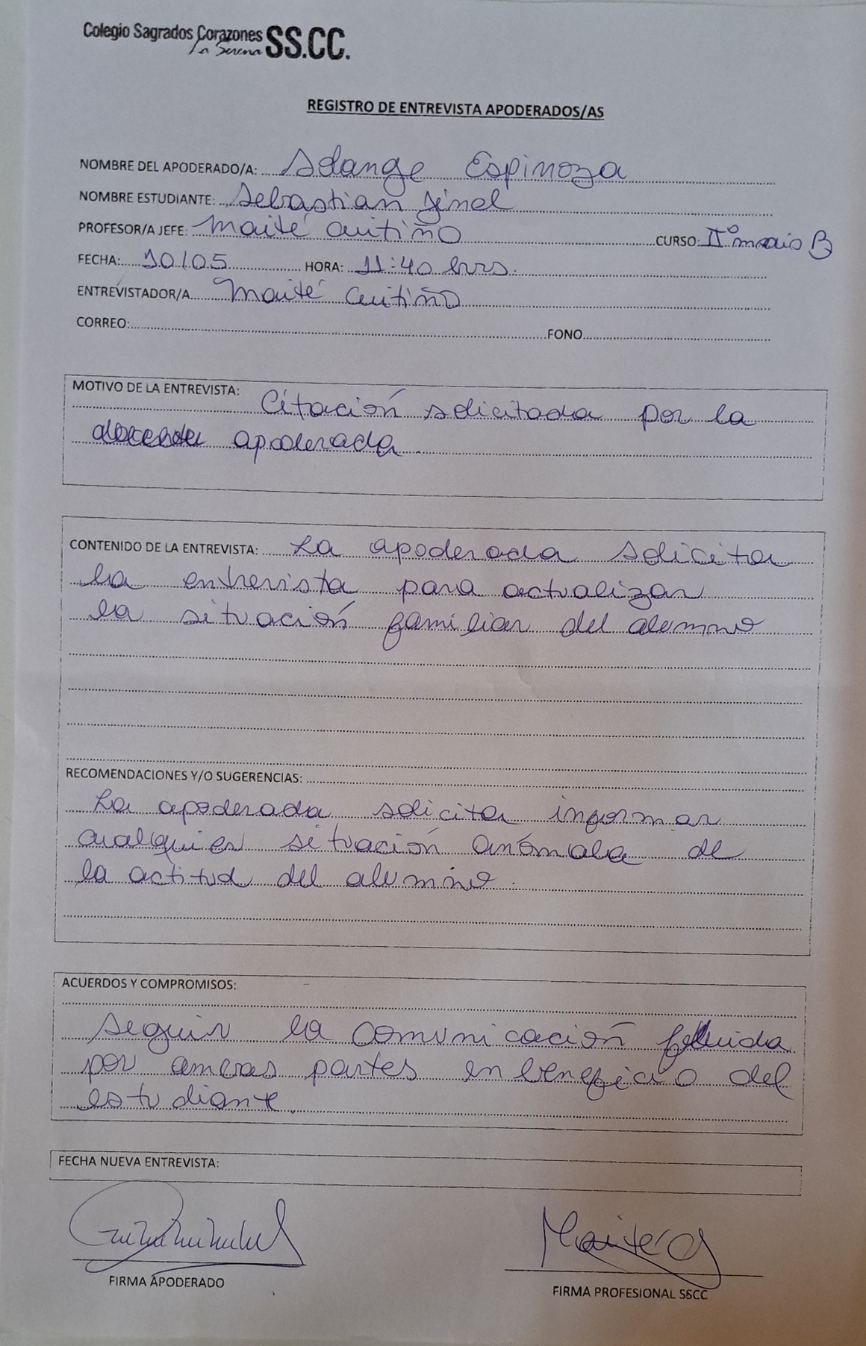 Colegio Sagrados Corazones
La Serena SS.CC.
REGISTRO DE ENTREVISTA APODERADOS/AS
NOMBRE DEL APODERADO/A: Solange Espinoza
NOMBRE ESTUDIANTE: Sebastian
PROFESOR/A JEFE: Maité Cuitiño CURSO: II° medio B
FECHA: 10/05 HORA: 11:40 hrs.
ENTREVISTADOR/A Maité Cuitiño
CORREO: FONO
MOTIVO DE LA ENTREVISTA: Citación solicitada por la
apoderada.
CONTENIDO DE LA ENTREVISTA: La apoderada solicita
la entrevista para actualizar
la situación familiar del alumno
RECOMENDACIONES Y/O SUGERENCIAS:
La apoderada solicita informar
cualquier situación anómala de
la actitud del alumno.
ACUERDOS Y COMPROMISOS:
Seguir la comunicación fluida
por ambas partes en beneficio del
estudiante.
FECHA NUEVA ENTREVISTA:
FIRMA APODERADO
FIRMA PROFESIONAL SSCC